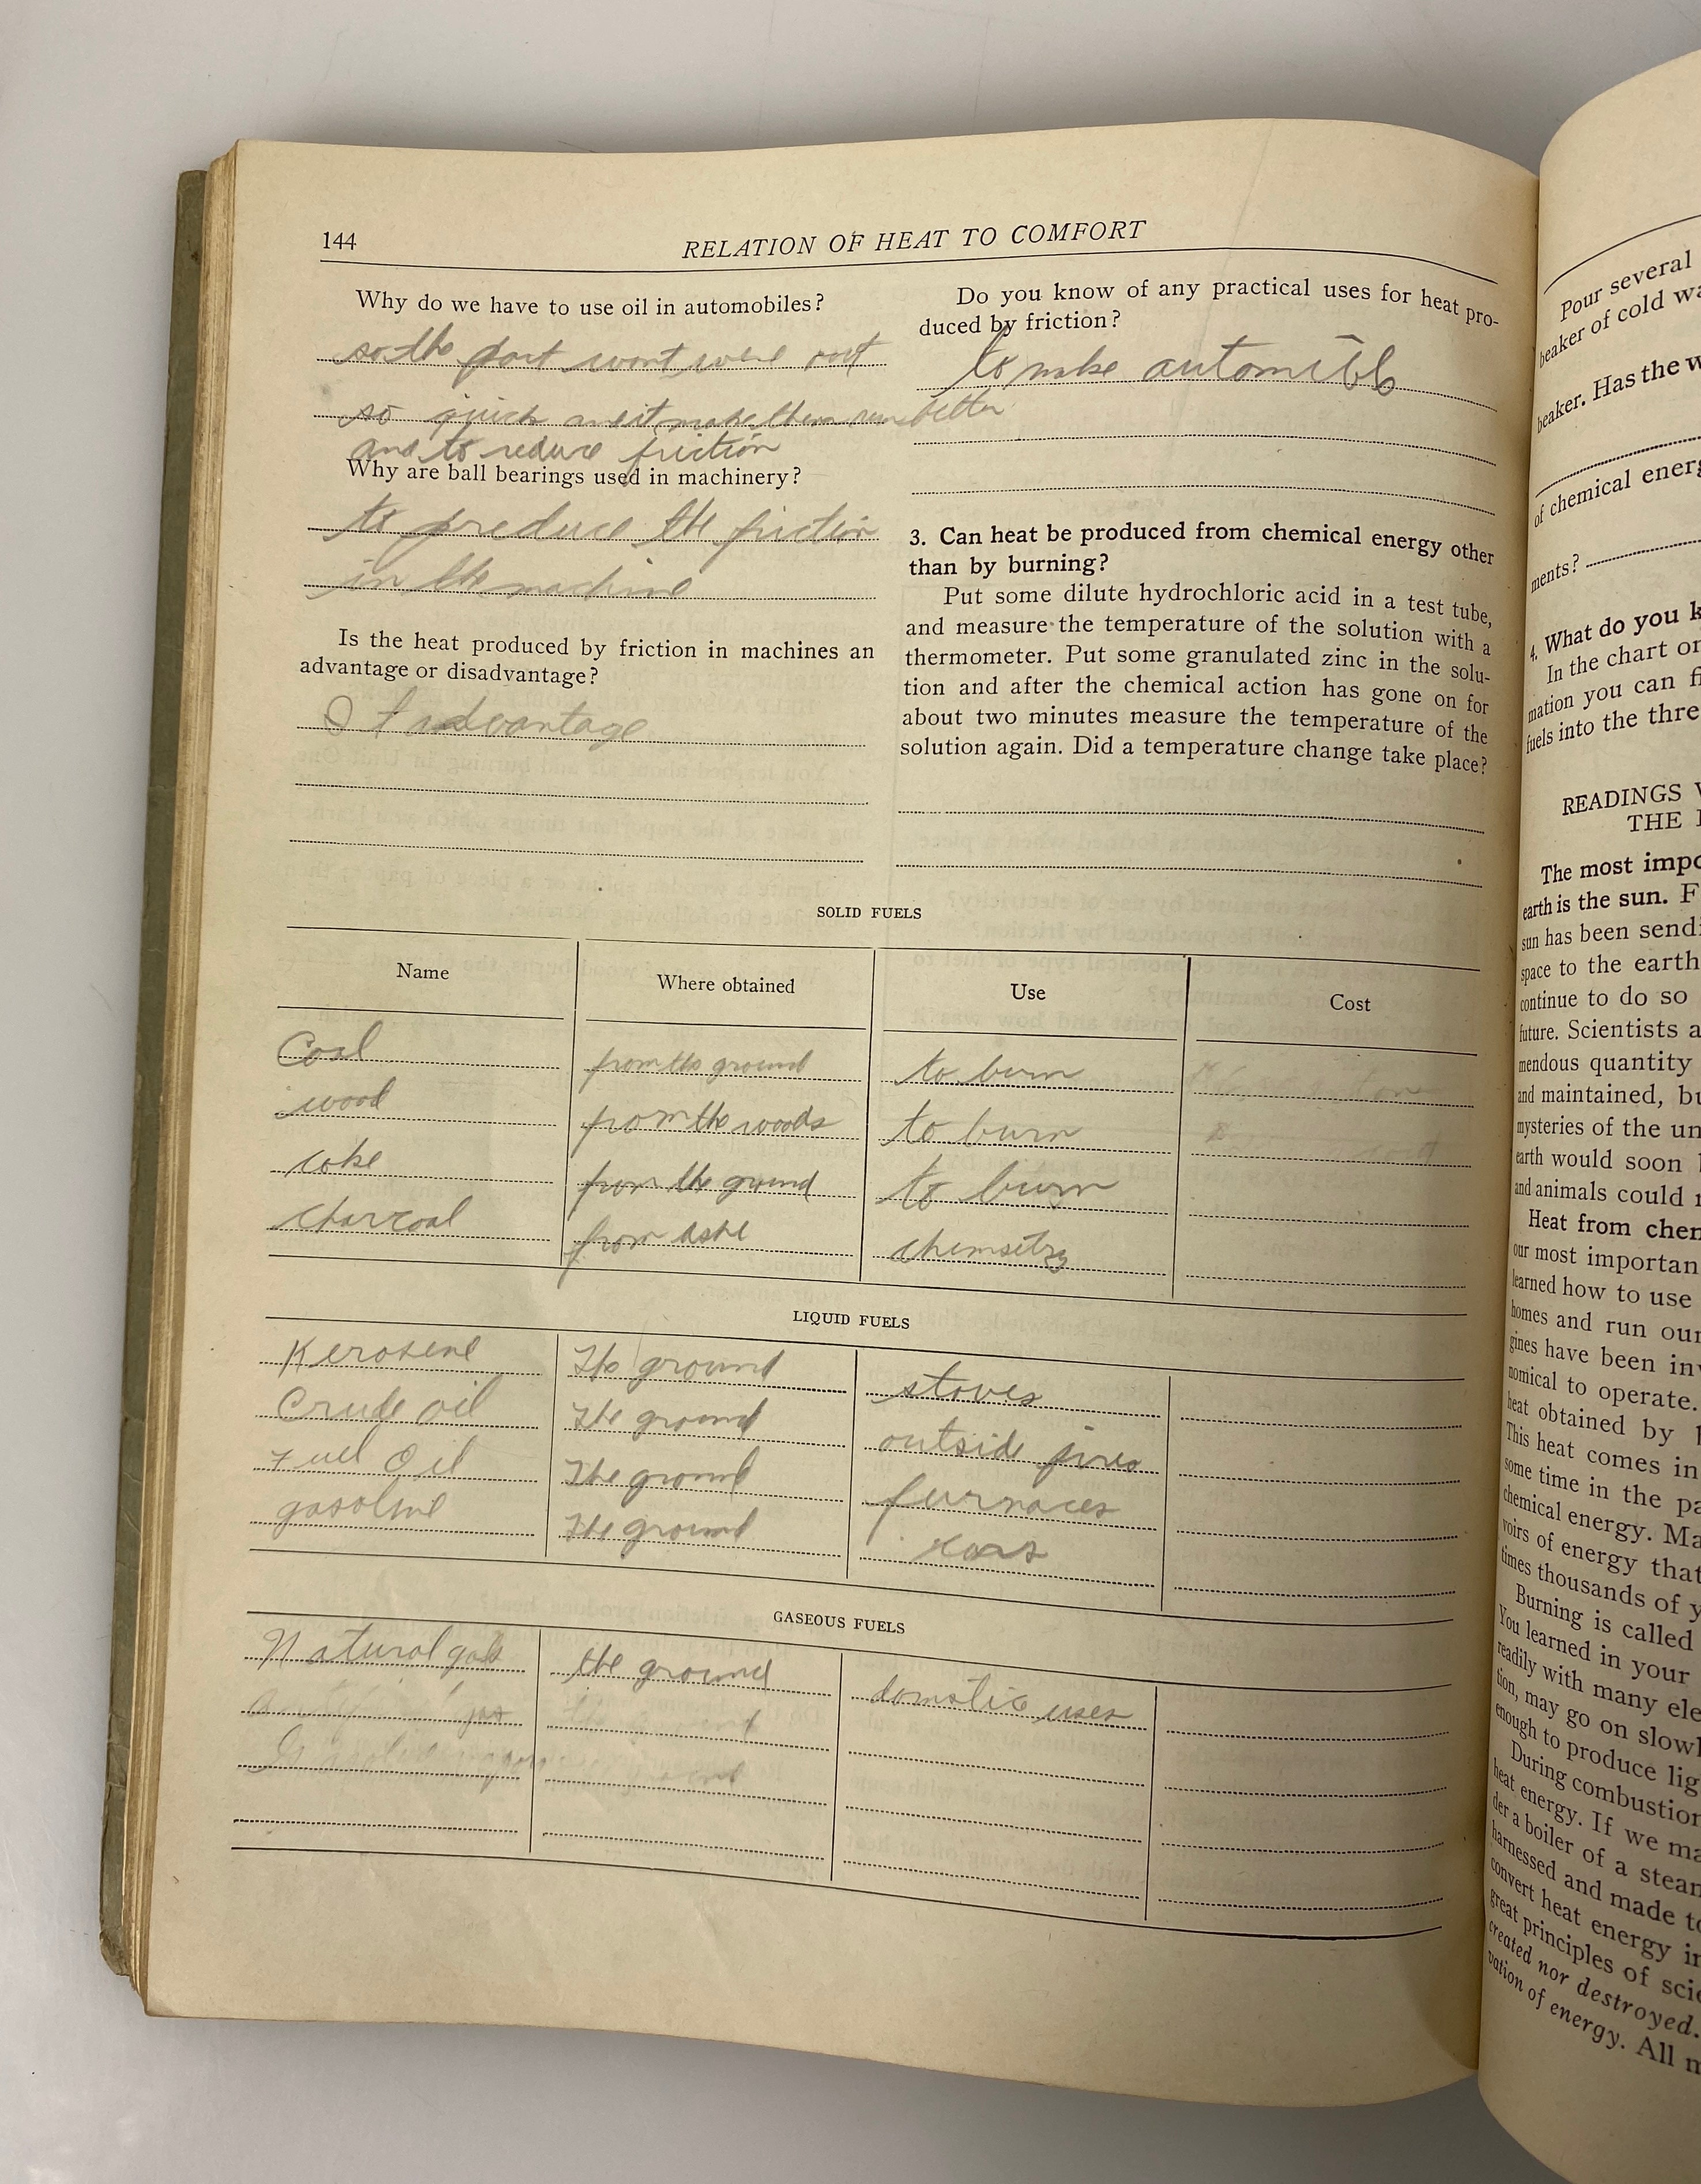 144
RELATION OF HEAT TO COMFORT
Why do we have to use oil in automobiles?
so the part wont were out
so quick and it make them run better
and to reduce friction
Why are ball bearings used in machinery?
to preduce the friction
in the machine
Is the heat produced by friction in machines an
advantage or disadvantage?
advantage
Do you know of any practical uses for heat pro-
duced by friction?
to make
3. Can heat be produced from chemical energy other
than by burning?
Put some dilute hydrochloric acid in a test tube,
and measure the temperature of the solution with a
thermometer. Put some granulated zinc in the solu-
tion and after the chemical action has gone on for
about two minutes measure the temperature of the
solution again. Did a temperature change take place?
SOLID FUELS
Name Where obtained Use Cost
Coal from the ground to burn
wood from the woods to burn
coke from the ground to burn
charcoal from
LIQUID FUELS
Kerosene The ground stoves
Crude oil The ground outside fires
Fuel Oil The ground furnaces
gasoline The ground cars
GASEOUS FUELS
Natural gas the ground domstic uses
gas the ground
the ground
Pour several
beaker of cold wa
beaker. Has the w
of chemical energ
ments?
4. What do you k
In the chart on
mation you can fi
fuels into the thre
READINGS
THE
The most impo
earth is the sun. F
sun has been sendi
space to the earth
continue to do so
future. Scientists a
mendous quantity
and maintained, bu
mysteries of the un
earth would soon
and animals could
Heat from chem
our most importan
learned how to use
homes and run our
gines have been inv
nomical to operate.
heat obtained by
This heat comes in
some time in the pa
chemical energy. Ma
voirs of energy that
times thousands of y
Burning is called
You learned in your
readily with many ele
tion, may go on slowl
enough to produce lig
During combustion
heat energy. If we ma
der a boiler of a stean
harnessed and made to
convert heat energy in
great principles of scie
created nor destroyed.
vation of energy. All m